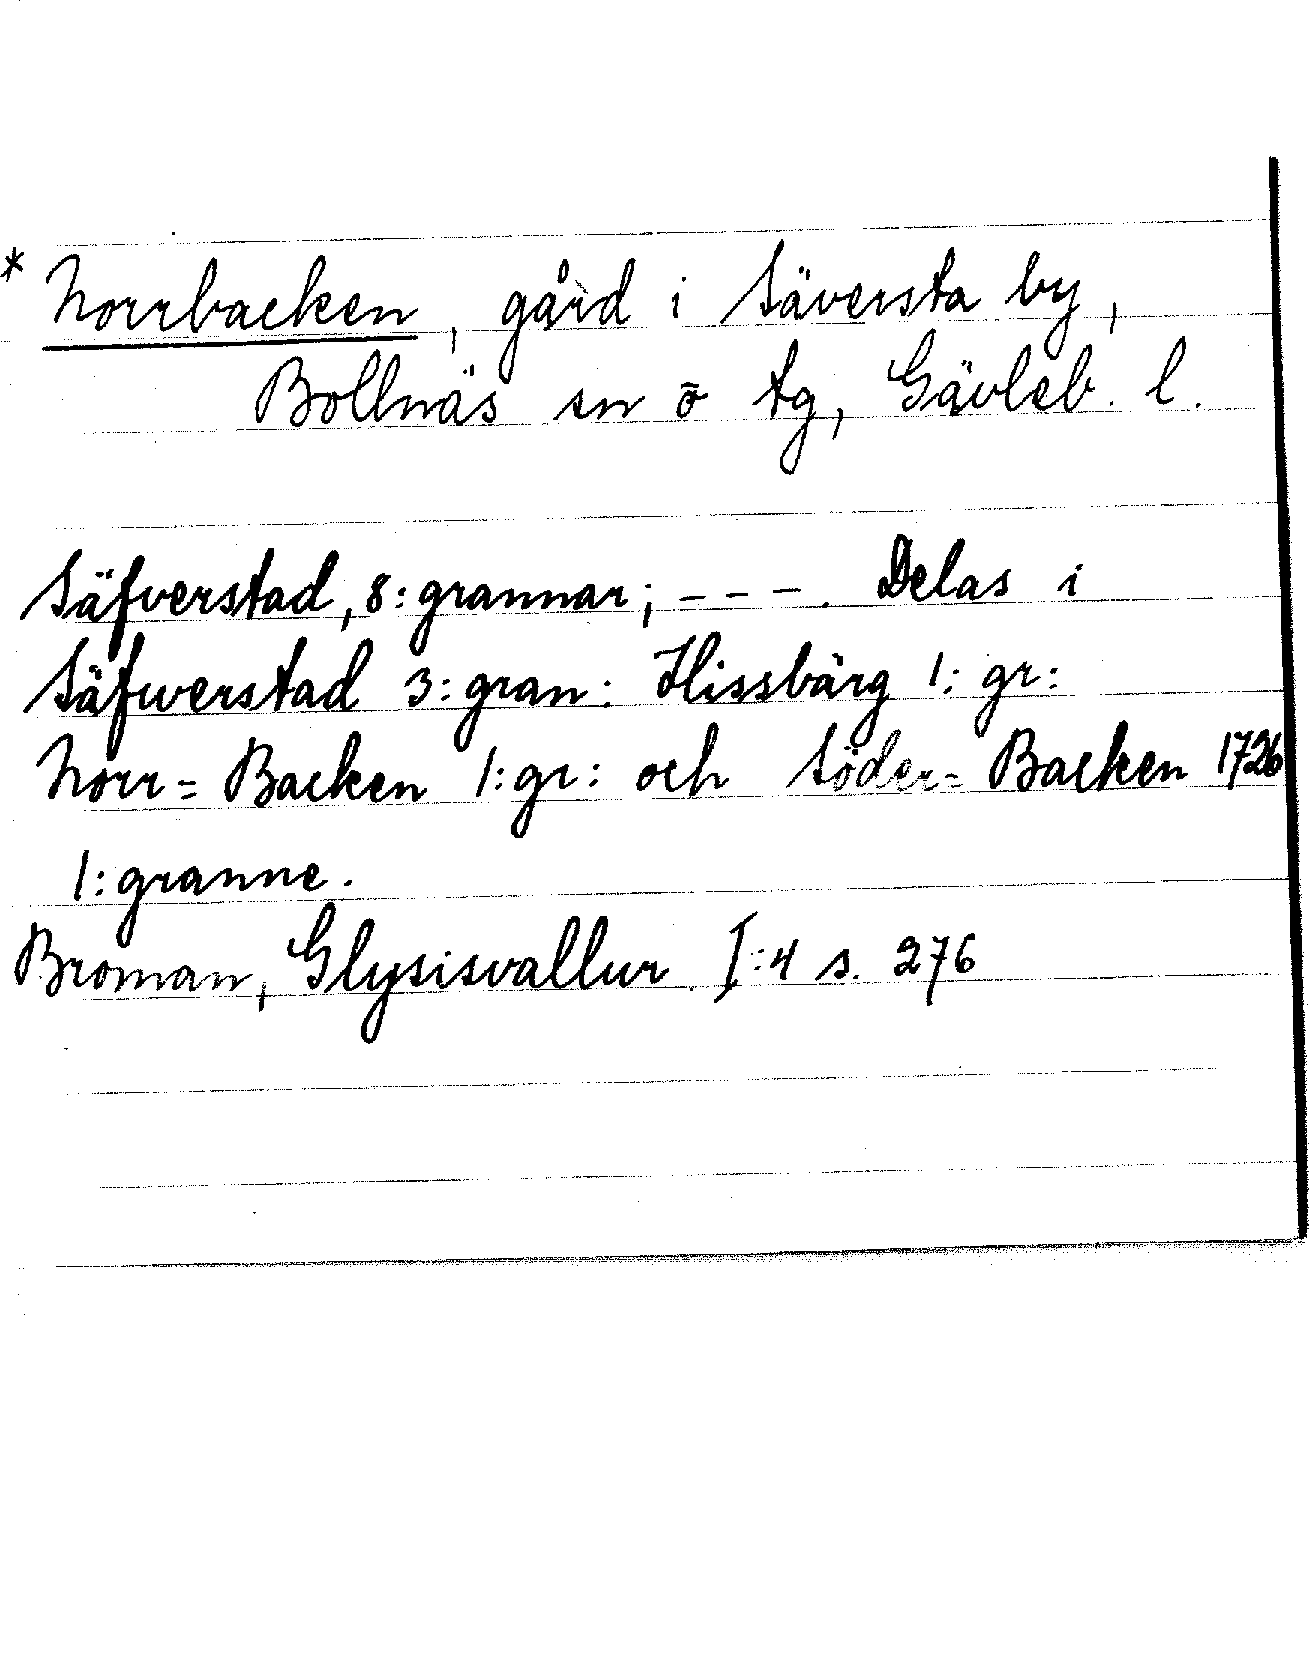 * Norrbacken, gård i Säversta by,
Bollnäs sn o tg, Gävleb. l.
Säfverstad, 8: grannar; - - -. Delas i
Säfwerstad 3: gran: Hissbärg 1: gr:
Norr= Backen 1: gr: och Söder= Backen 1726
1: granne.
Broman, Glysisvallur. I:4 s. 276